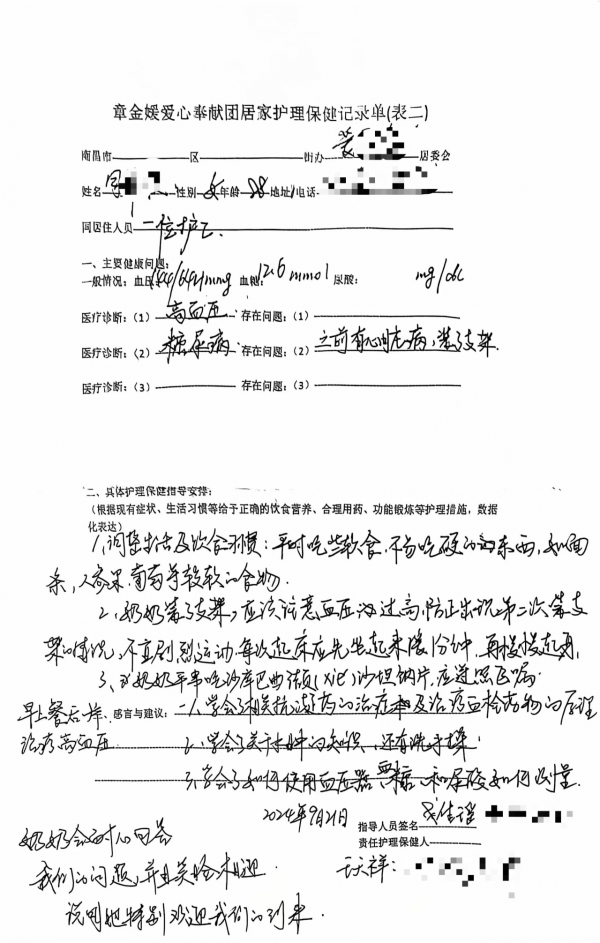 章金媛爱心奉献团居家护理保健记录单(表二)
南昌市 区 街办 居委会
姓名 性别 女 年龄 88 地址/电话
同居住人员 一位护工
一、主要健康问题:
一般情况:血压 144/64mmg 血糖:12.6 mmol 尿酸: mg/dl
医疗诊断:(1)高血压 存在问题:(1)
医疗诊断:(2)糖尿病 存在问题:(2)之前有心脏病,装了支架.
医疗诊断:(3) 存在问题:(3)
二、具体护理保健指导安排:
(根据现有症状、生活习惯等给予正确的饮食营养、合理用药、功能锻炼等护理措施,数据
化表达)
1、调整生活及饮食习惯:平时吃些软食,不易吃硬的东西,如面
条,葡萄等较软的食物.
2、奶奶装了支架,应该注意血压的过高,防止出现第二次装支
架的情况,不宜剧烈运动.每次起床应先坐起来缓1分钟,再慢慢起身.
3、奶奶平常吃沙库巴曲缬沙坦钠片,应遵照医嘱.
早上餐后一样 感言与建议:1、学会了相关抗凝药的治疗及治疗血栓药物的原理
治疗高血压 2、学会了关于的知识,还有洗手操
3、学会了如何使用血压器,血糖、和尿酸如何测量.
2024年9月21日 指导人员签名
责任护理保健人
奶奶会耐心回答
我们的问题,并且笑脸相迎
说明她特别欢迎我们的到来.